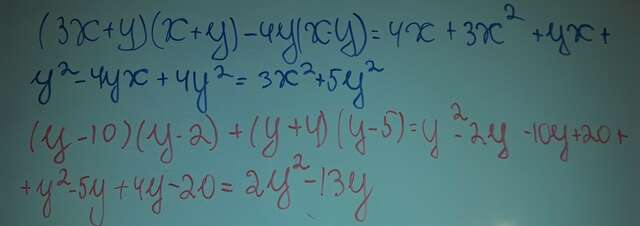 (3x+y)(x+y)-4y(x-y)=4x+3x²+yx+
y²-4yx+4y²=3x²+5y²
(y-10)(y-2)+(y+4)(y-5)=y²-2y-10y+20+
+y²-5y+4y-20=2y²-13y